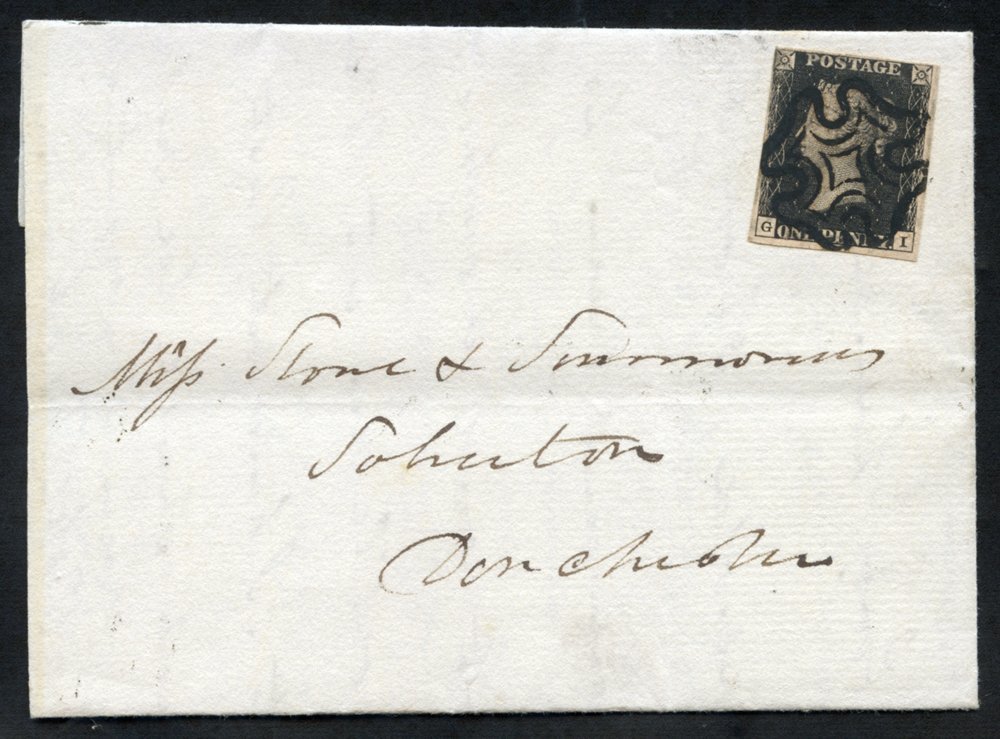 POSTAGE
G ONE PENNY. I
Miss Stone & Simmonds
Soliciton
Dorchester